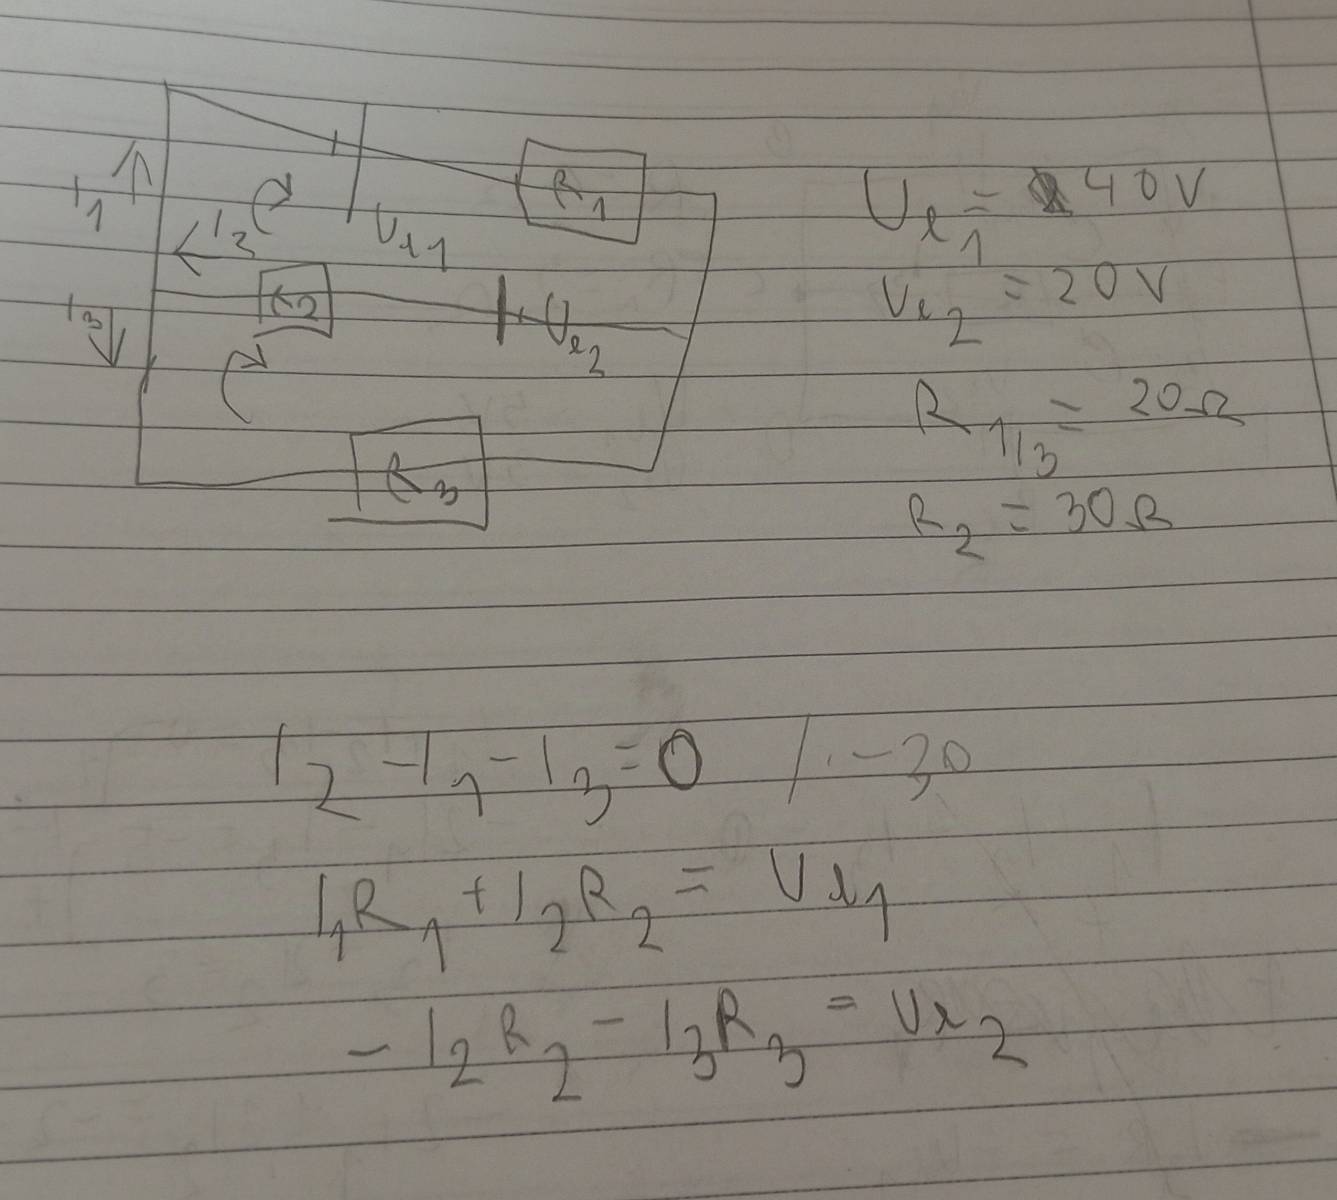 R₁
I₁
I₂
Uₑ₁
R₂
I₃
Uₑ₂
R₃
Uₑ₁ = 40V
Uₑ₂ = 20V
R₁/₃ = 20Ω
R₂ = 30Ω
I₂ - I₁ - I₃ = 0 /·-30
I₁R₁ + I₂R₂ = Uₑ₁
- I₂R₂ - I₃R₃ = Uₑ₂